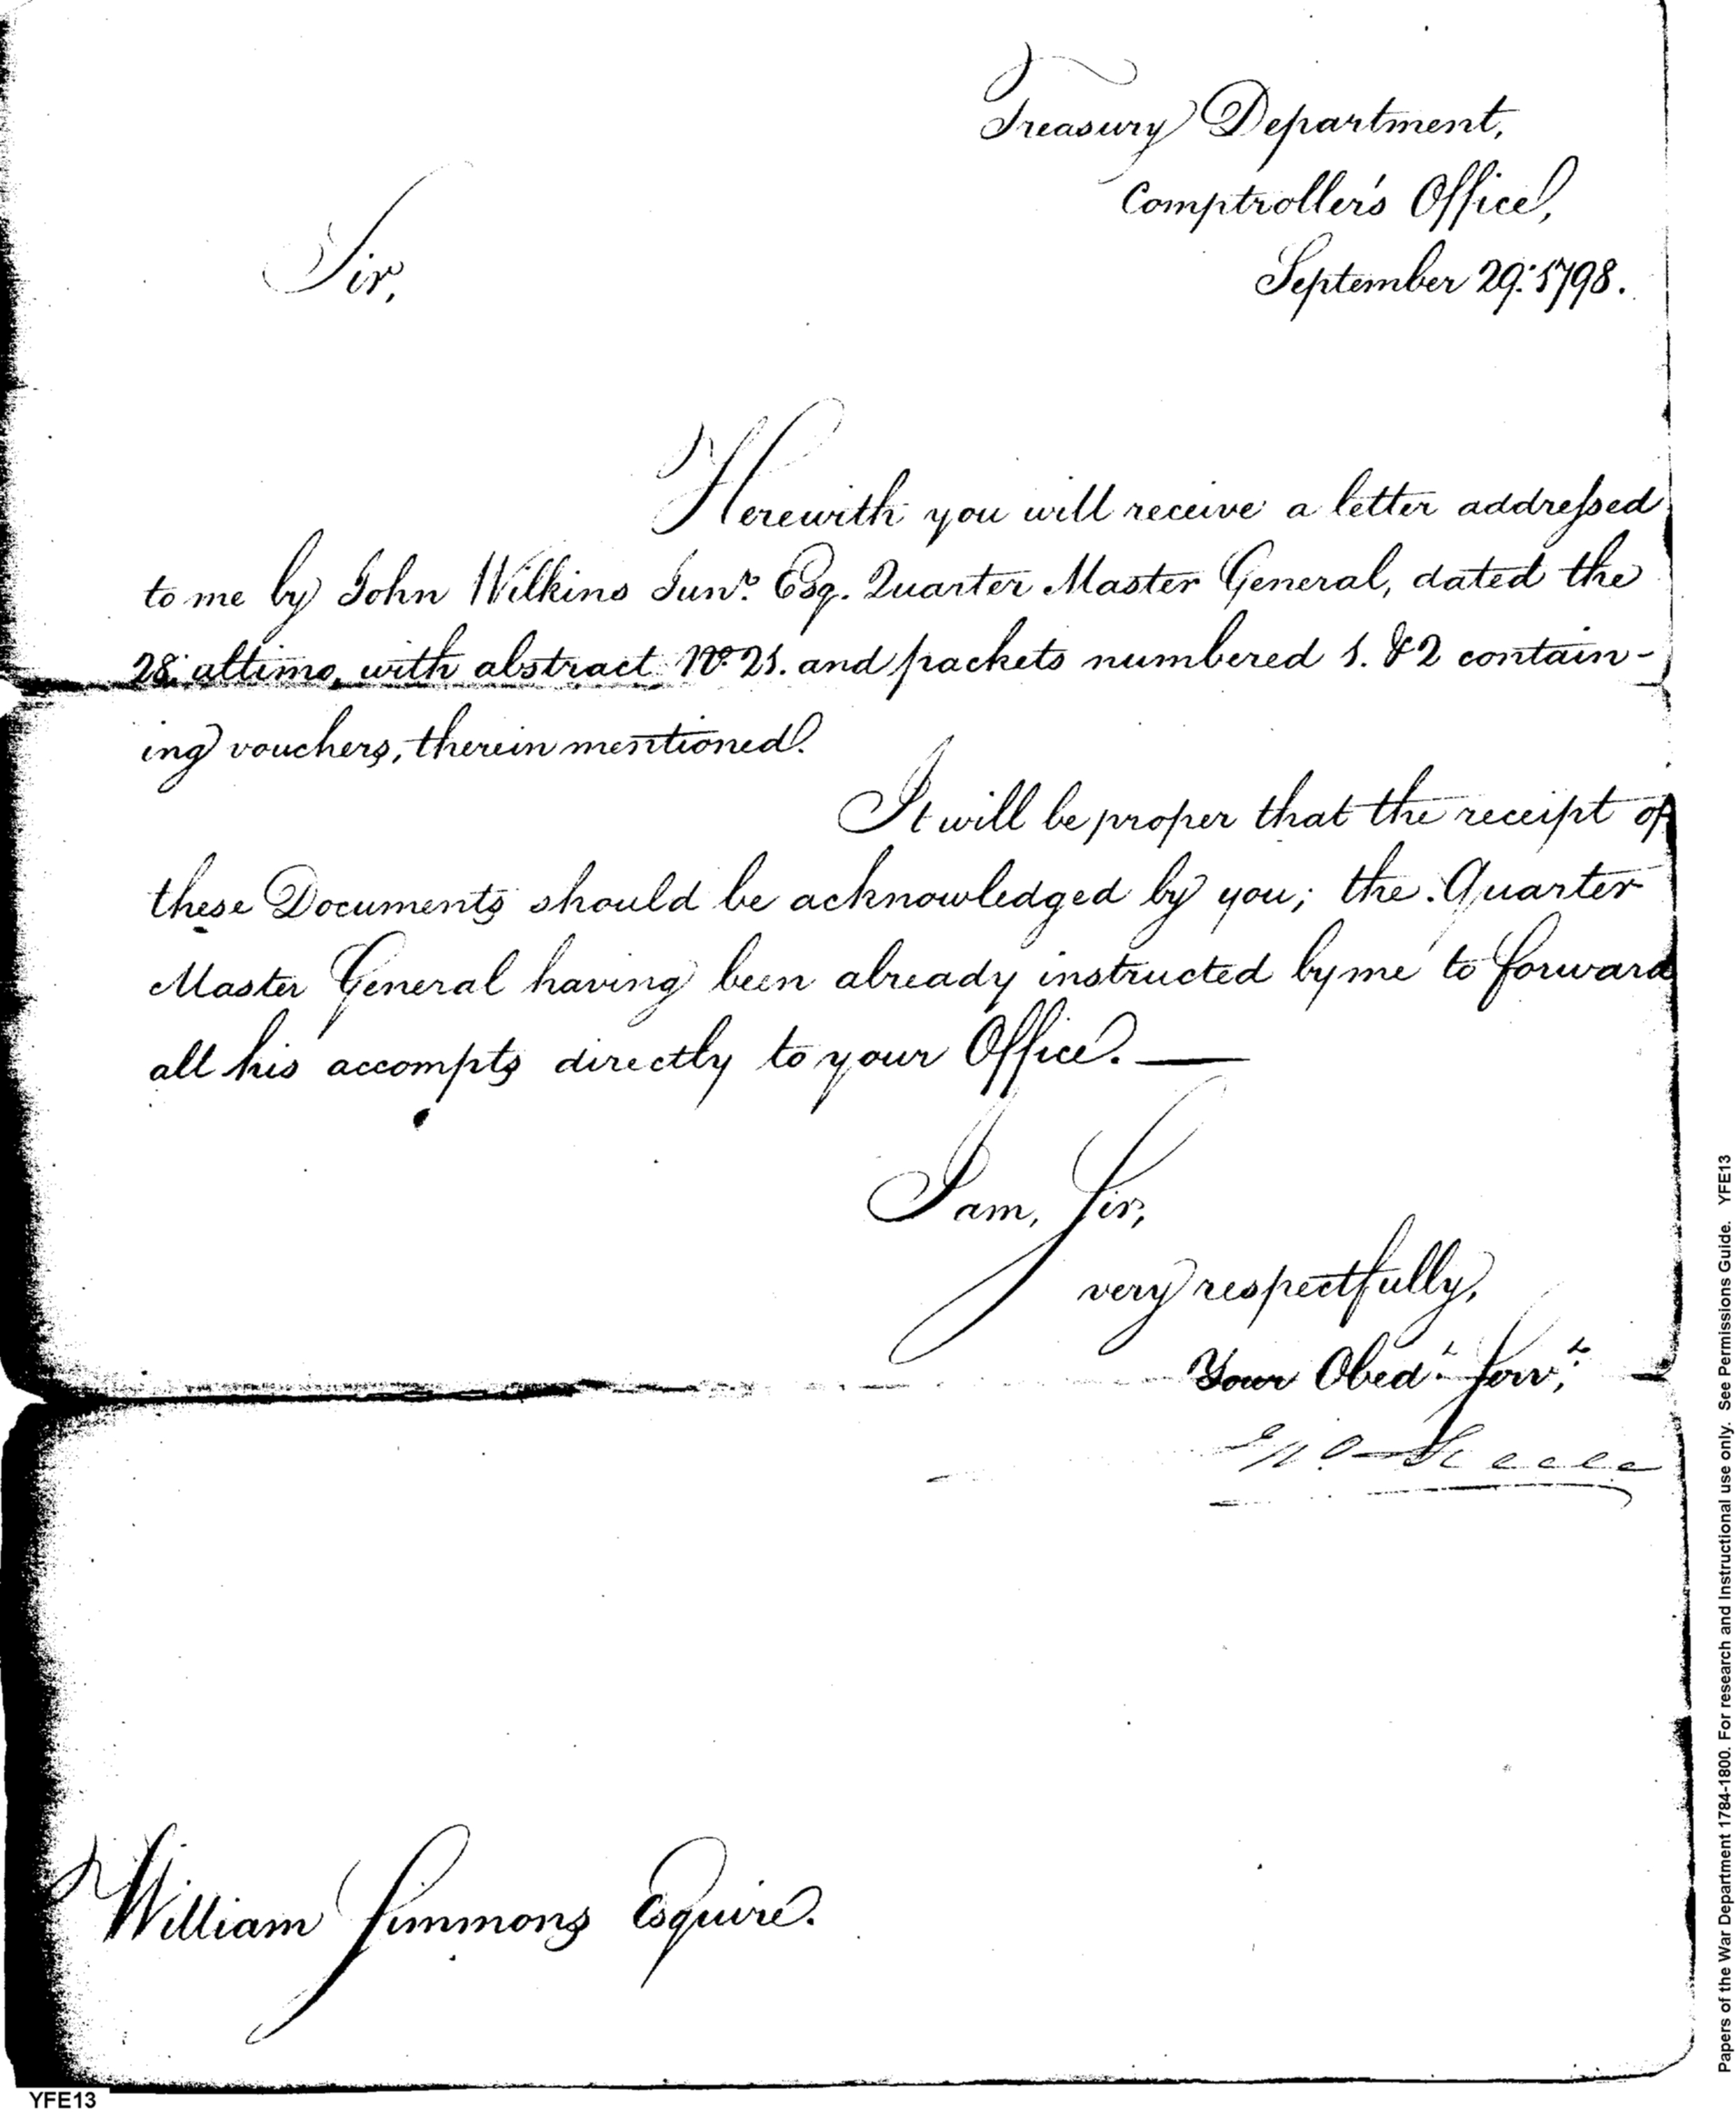 Treasury Department,
Comptroller's Office,
September 29: 1798.
Sir,
Herewith you will receive a letter addreſsed
to me by John Wilkins Junr. Esq. Quarter Master General, dated the
28: ultimo, with abstract No. 21. and packets numbered 1. & 2 contain-
ing vouchers, therein mentioned.
It will be proper that the receipt of
these Documents should be acknowledged by you; the Quarter
Master General having been already instructed by me to forward
all his accompts directly to your Office.—
I am, Sir,
very respectfully,
Your Obedt. Servt.
Jno. Steele
William Simmons Esquire.
YFE13
Papers of the War Department 1784-1800. For research and Instructional use only. See Permissions Guide. YFE13